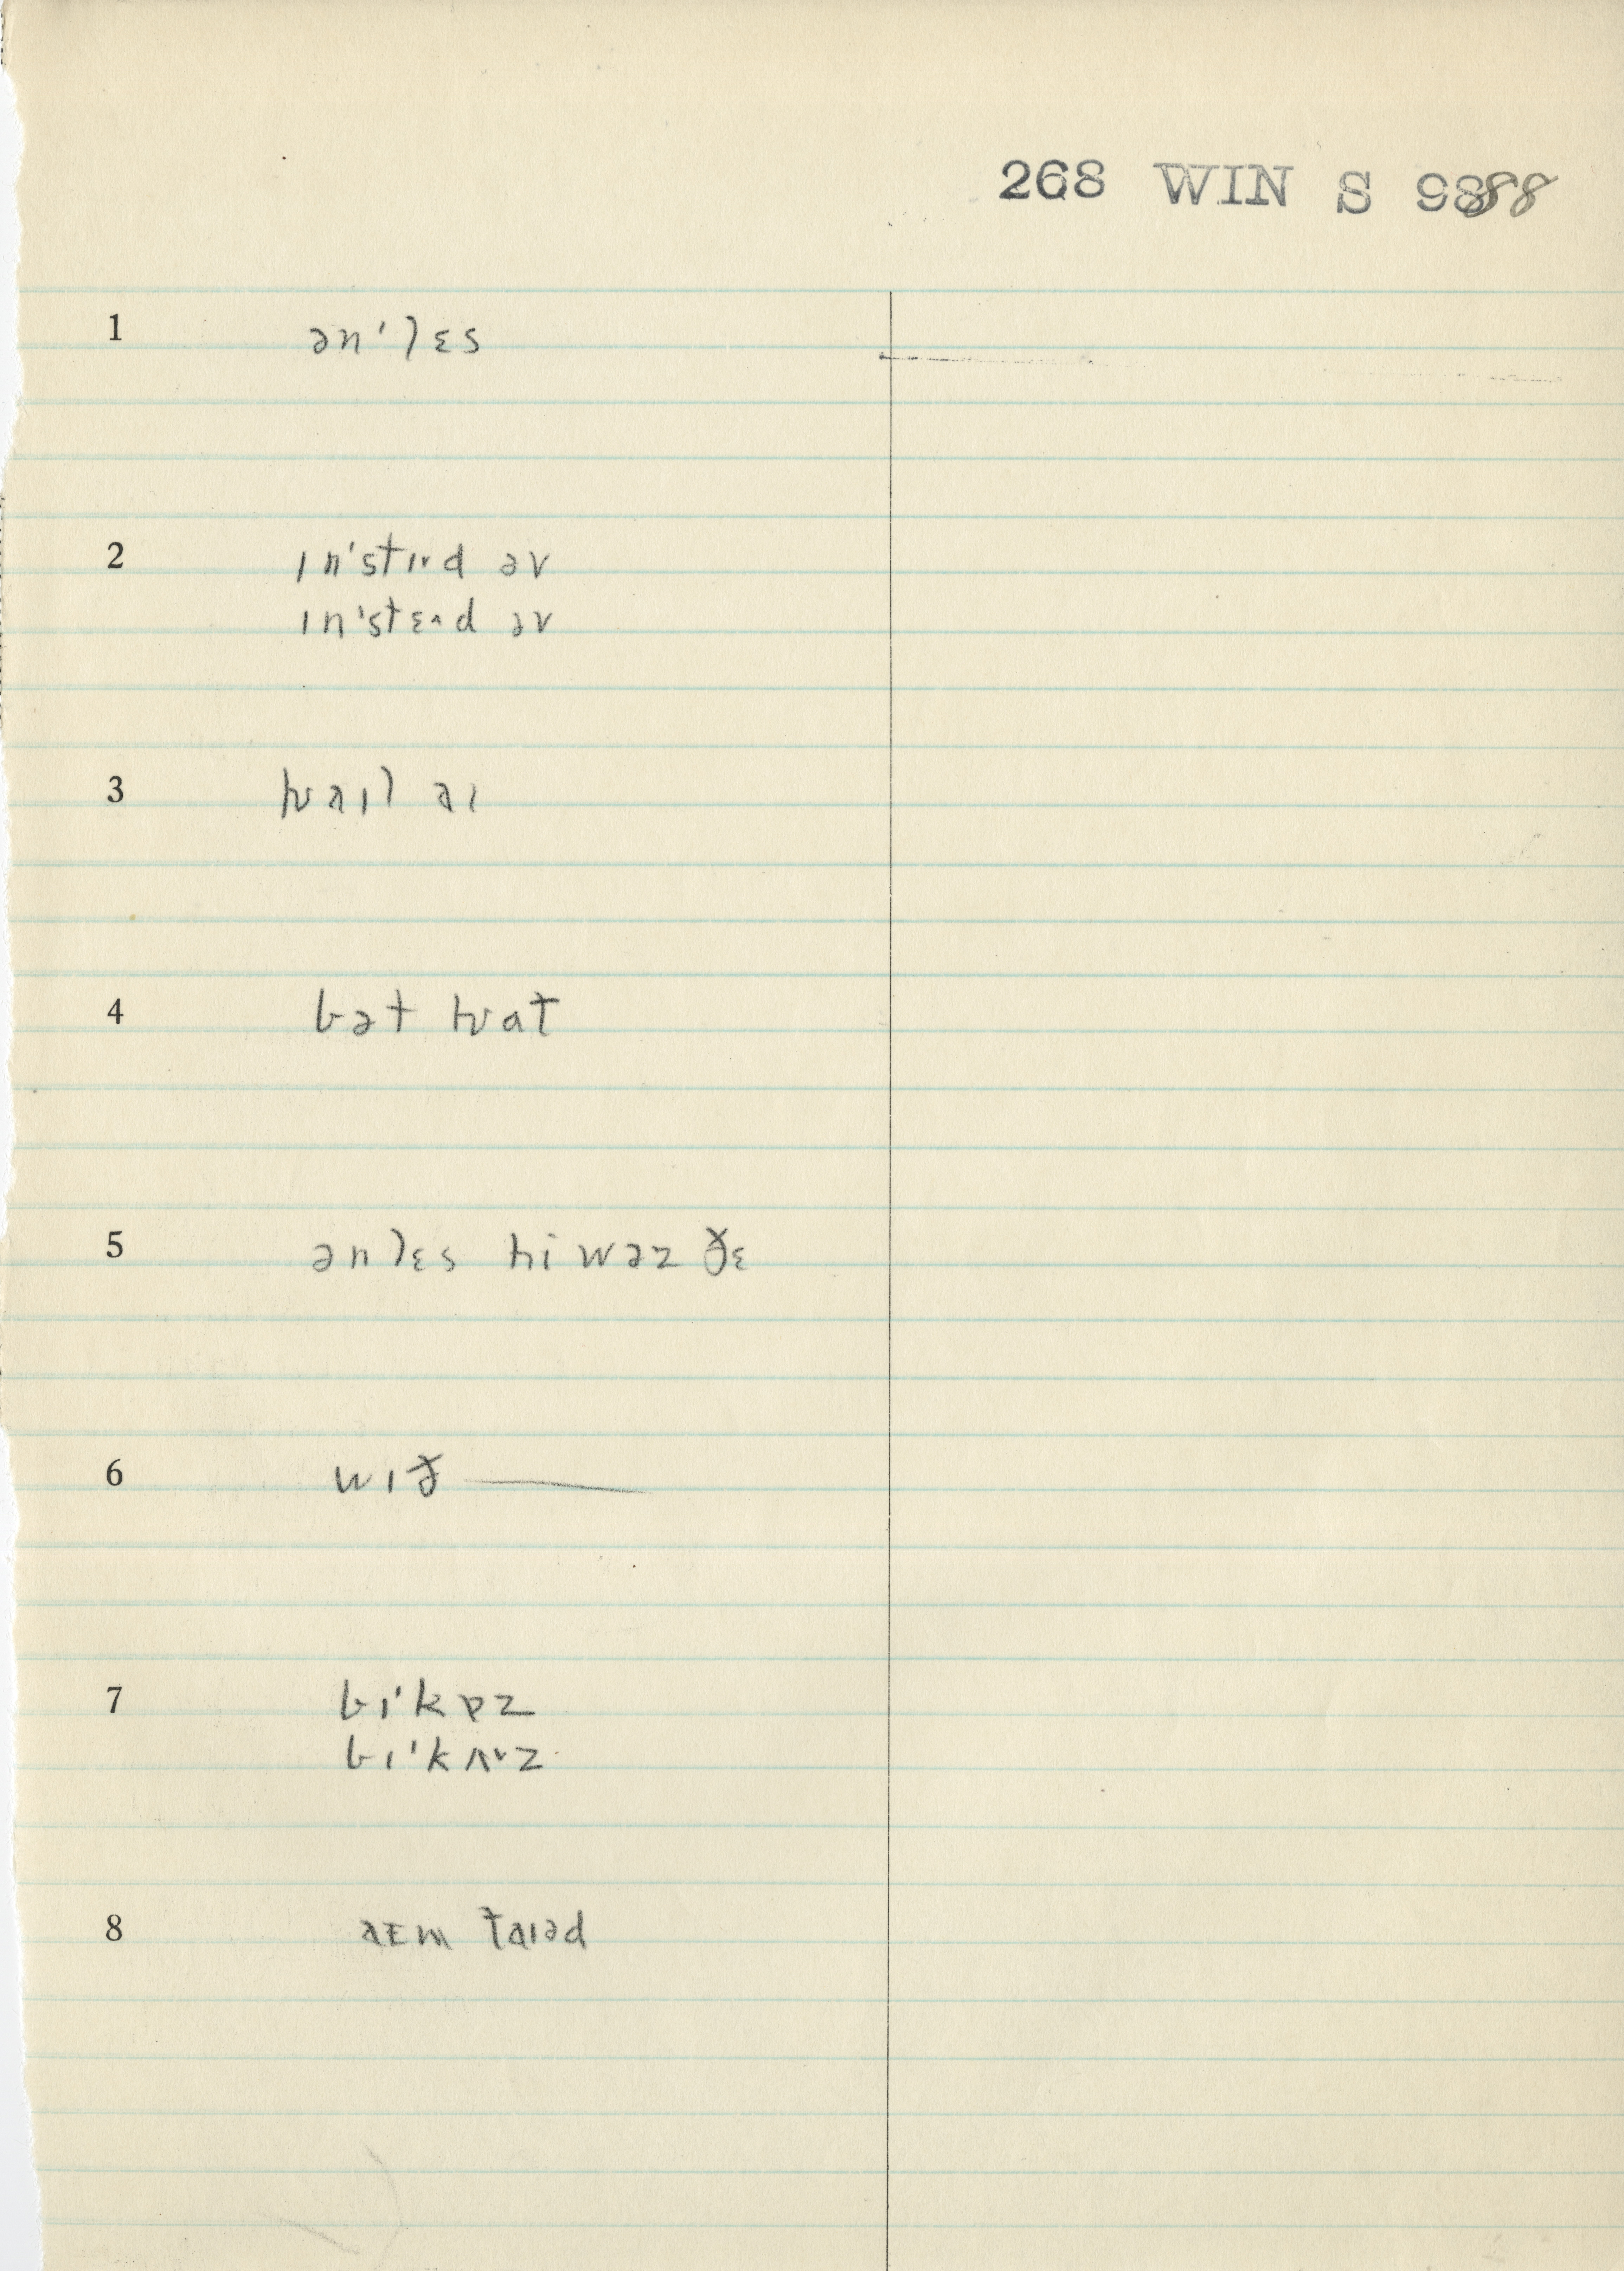 268 WIN S 9888
1 ən'lɛs
2 ɪn'stɪ˞d əv
ɪn'stɛ^d əv
3 hwaɪl aɪ
4 bət hwat
5 ənlɛs hi wəz ðɛ
6 wɪð ——
7 bɪ'kɒz
bɪ'kʌ˅z
8 aɪm taɪəd